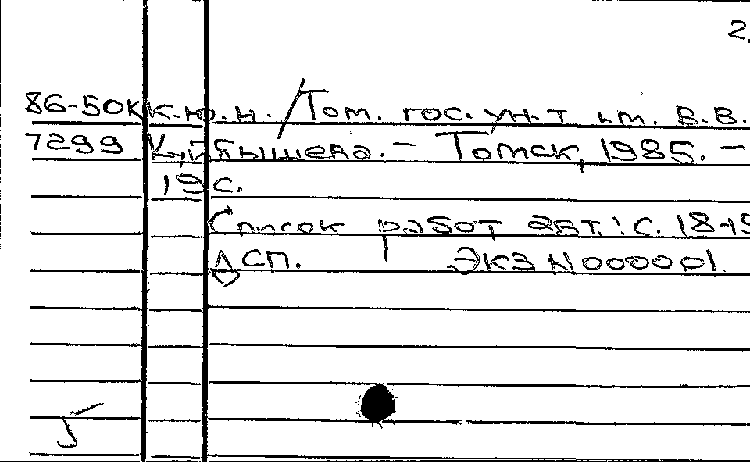 2.
86-50к к.ю.н. /Том. гос. ун-т им. В.В.
7299 Куйбышева. – Томск, 1985. –
19 с.
Список работ авт.: с. 18-19
ДСП. Экз N000001.
5